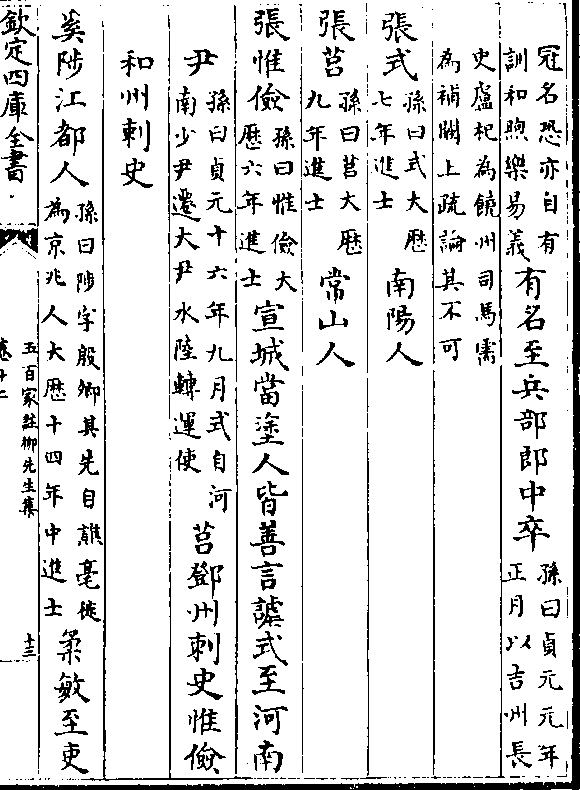 冠名恐亦自有
訓和煦樂易義
有名至兵部郎中卒
孫曰貞元元年
正月以吉州長
史盧杞為饒州司馬需
為補闕上疏論其不可
張式
孫曰式大歷
七年進士
南陽人
張莒
孫曰莒大歷
九年進士
常山人
張惟儉
孫曰惟儉大
歷六年進士
宣城當塗人皆善言謔式至河南
尹
孫曰貞元十六年九月式自河
南少尹遷大尹水陸轉運使
莒鄧州刺史惟儉
和州刺史
奚陟江都人
孫曰陟字殷卿其先自譙亳徙
為京兆人大歷十四年中進士
柔敏至吏
欽定四庫全書
五百家註柳先生集
卷十二
十三